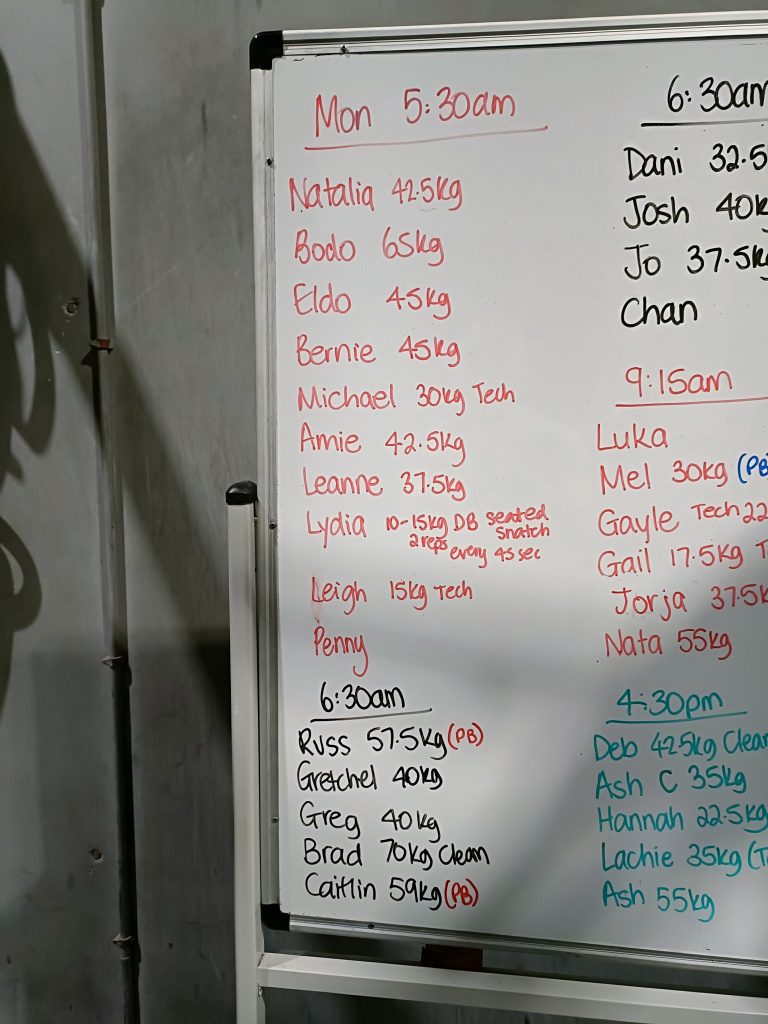 Mon 5:30am
Natalia 42.5kg
Bodo 65kg
Eldo 45kg
Bernie 45kg
Michael 30kg Tech
Amie 42.5kg
Leanne 37.5kg
Lydia 10-15kg DB seated snatch
2 reps every 45 sec
Leigh 15kg Tech
Penny
6:30am
Russ 57.5kg (PB)
Gretchel 40kg
Greg 40kg
Brad 70kg Clean
Caitlin 59kg (PB)
6:30am
Dani 32.5
Josh 40k
Jo 37.5kg
Chan
9:15am
Luka
Mel 30kg (PB)
Gayle Tech 22
Gail 17.5kg T
Jorja 37.5k
Nata 55kg
4:30pm
Deb 42.5kg Clean
Ash C 35kg
Hannah 22.5kg
Lachie 35kg (T
Ash 55kg